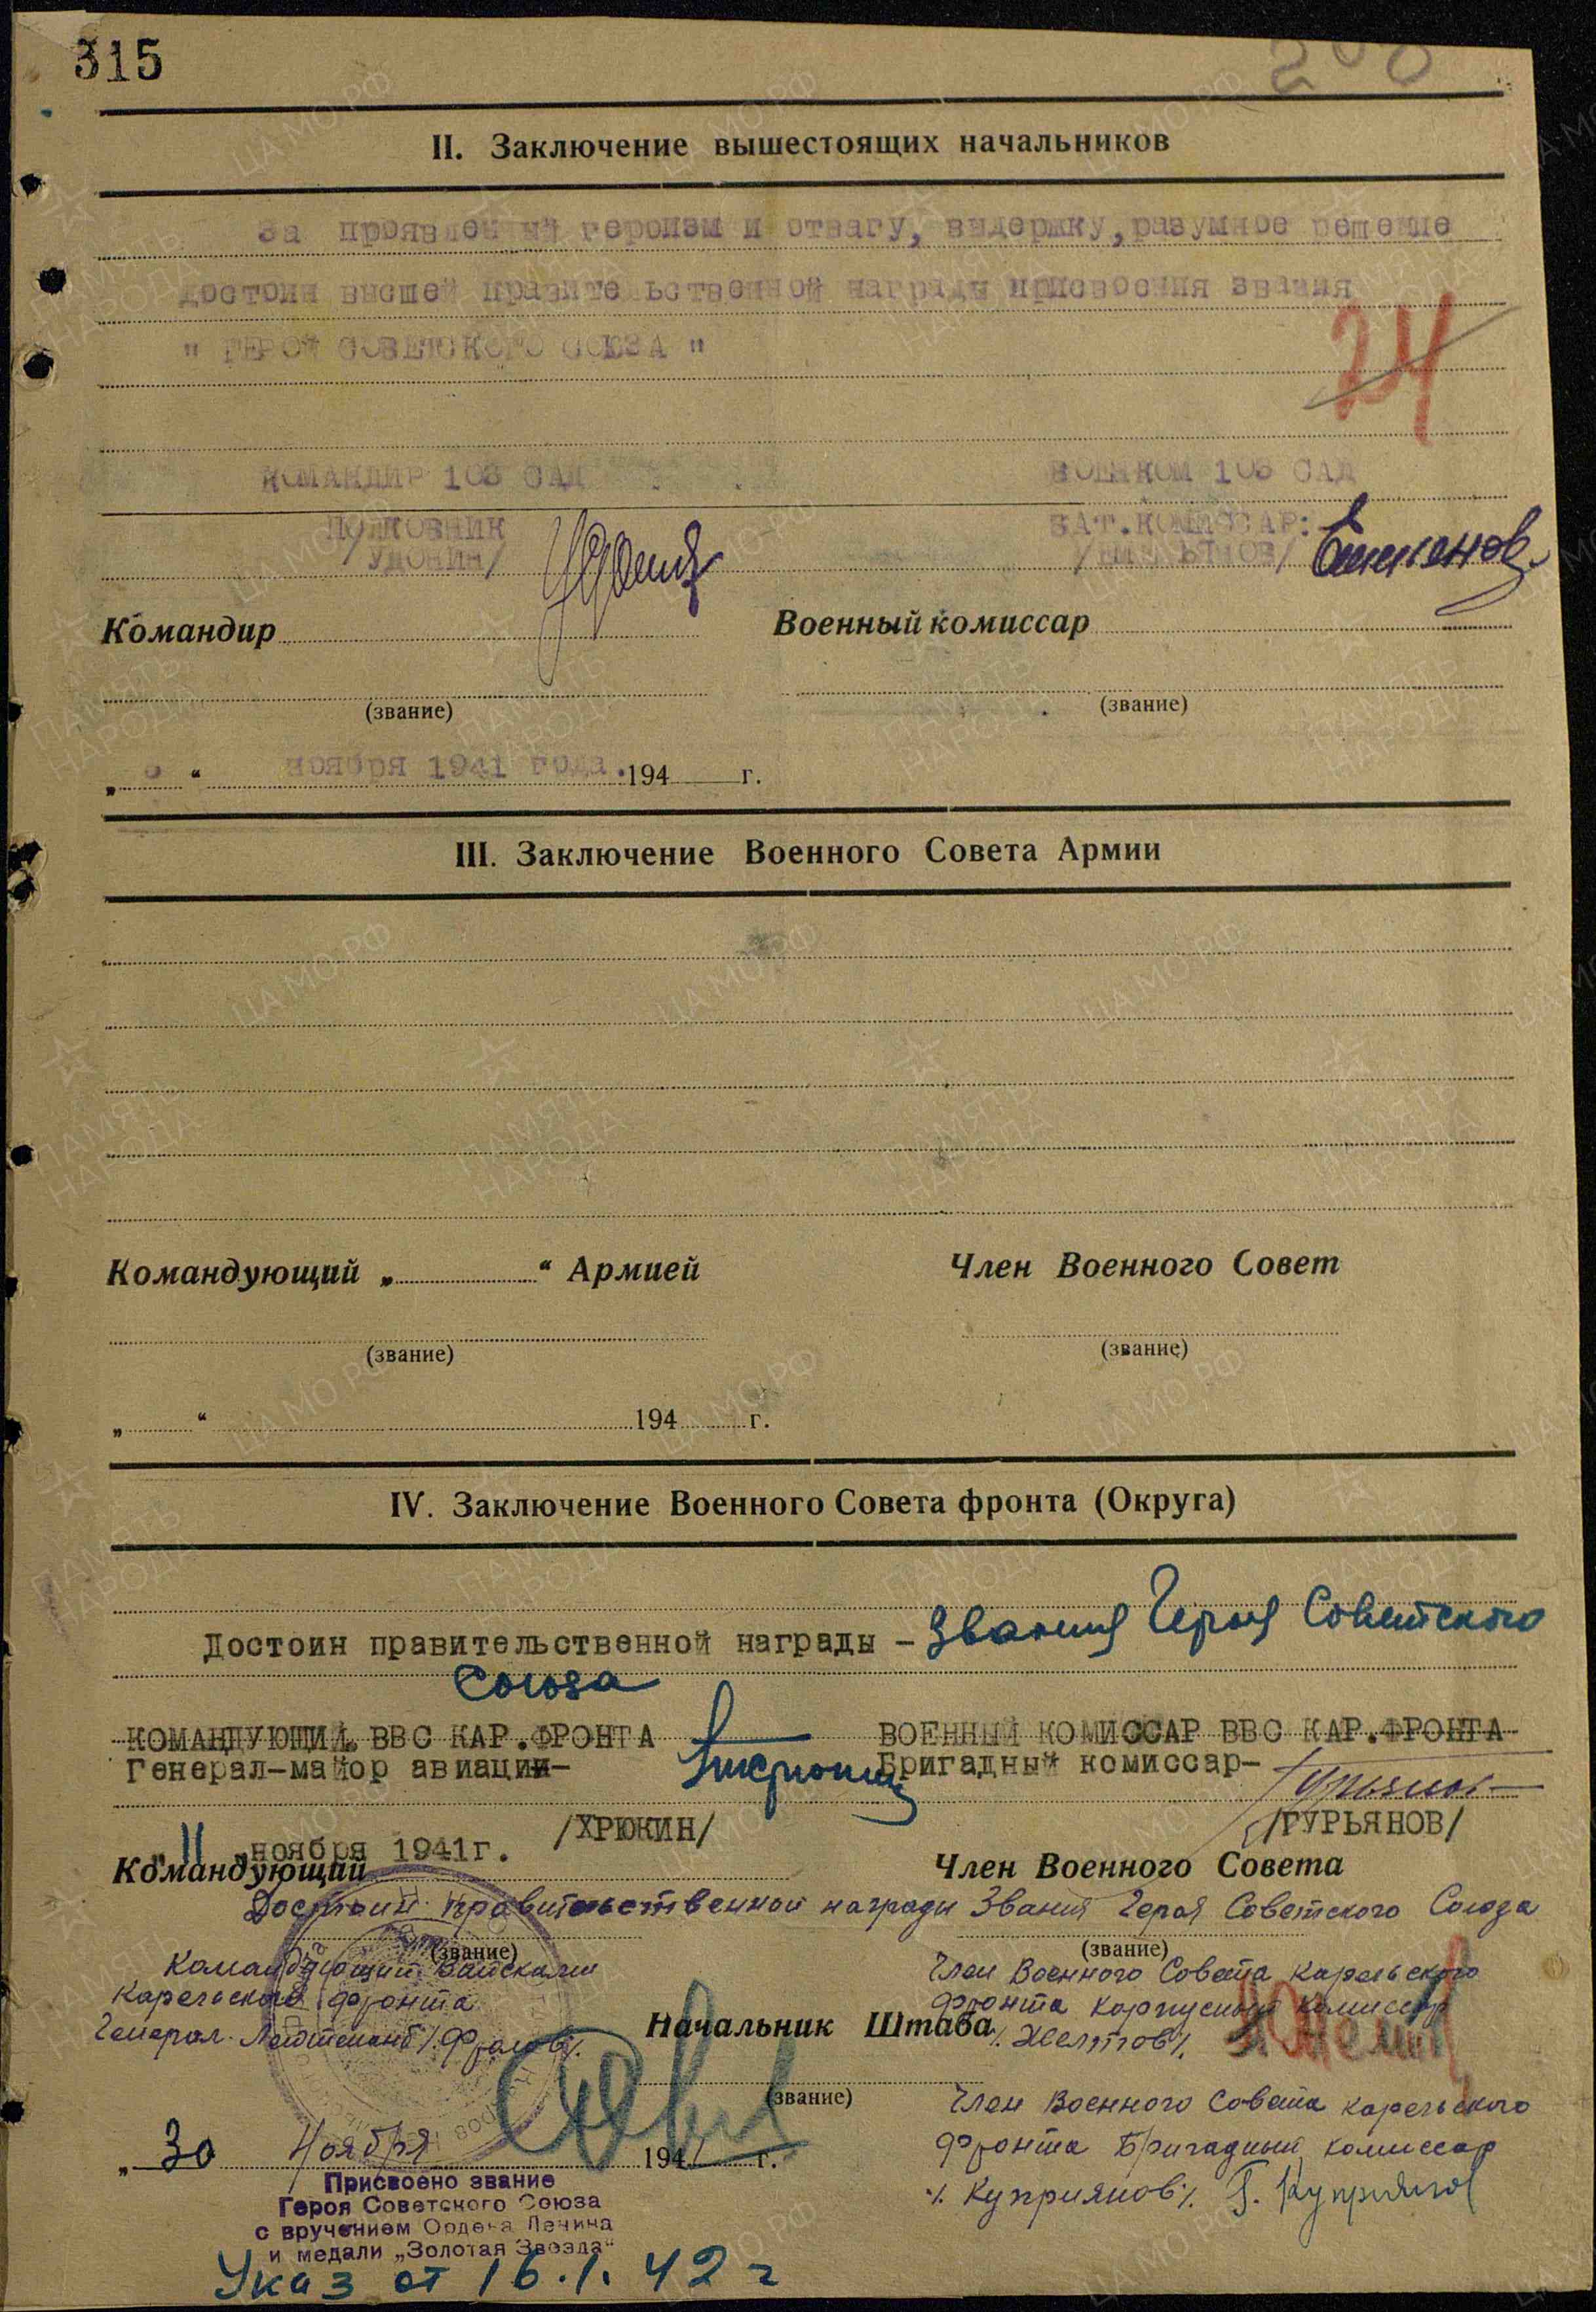 315
II. Заключение вышестоящих начальников
За проявленный героизм и отвагу, выдержку, разумное решение
достоин высшей правительственной награды присвоения звания
" ГЕРОЙ СОВЕТСКОГО СОЮЗА "
24
КОМАНДИР 103 САД
ВОЕНКОМ 103 САД
ПОЛКОВНИК
БАТ.КОМИССАР:
/УДОНИН/
Командир
Военный комиссар
(звание)
(звание)
„ “ ноября 1941 года. 194 г.
III. Заключение Военного Совета Армии
Командующий „ “ Армией
Член Военного Совет
(звание)
(звание)
„ “ 194 г.
IV. Заключение Военного Совета фронта (Округа)
Достоин правительственной награды - Звания Героя Советского
Союза
КОМАНДУЮЩИЙ ВВС КАР.ФРОНТА
ВОЕННЫЙ КОМИССАР ВВС КАР.ФРОНТА
Генерал-майор авиации-
Бригадный комиссар-
/ХРЮКИН/
/ГУРЬЯНОВ/
„11„ ноября 1941г.
Командующий
Член Военного Совета
Достоин правительственной награды Звания Героя Советского Союза
(звание)
(звание)
Командующий Войсками
Карельского фронта
Генерал-Лейтенант /Фролов/.
Член Военного Совета Карельского
фронта корпусный комиссар
/. Желтов/.
Начальник Штаба
(звание)
Член Военного Совета Карельского
фронта Бригадный комиссар
/. Куприянов/. Г. Куприянов
„ 30 Ноября 1941 г.
Присвоено звание
Героя Советского Союза
с вручением Ордена Ленина
и медали „Золотая Звезда“
Указ от 16.1.42 г